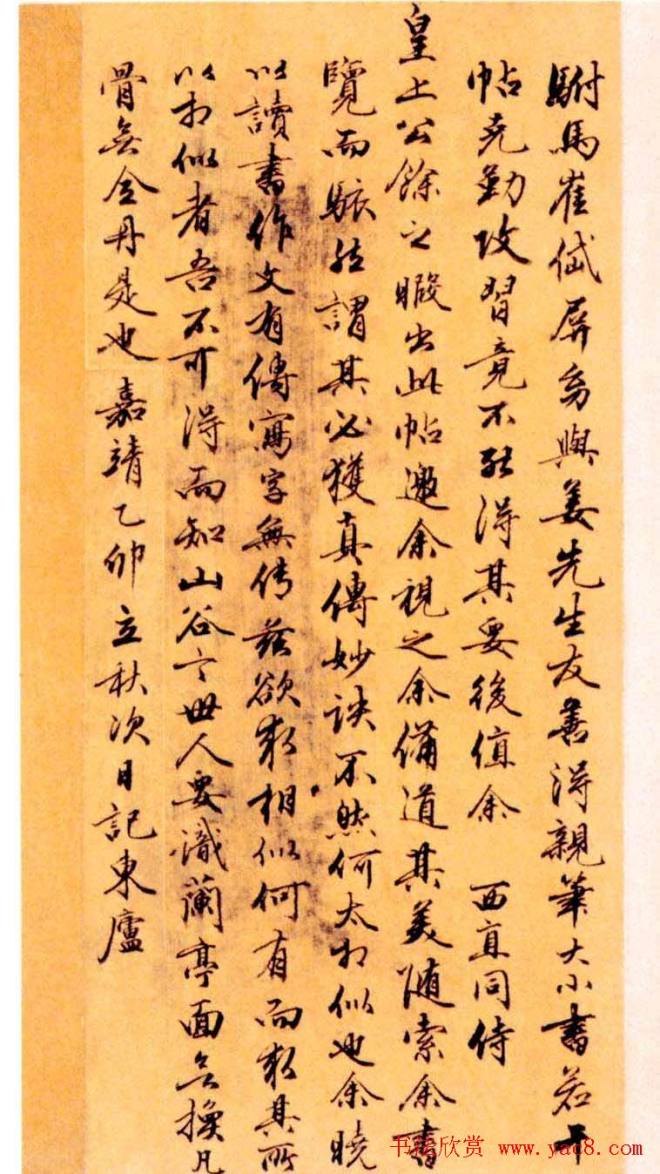 駙馬崔岱屏舟與姜先生友善得親筆大小書若干
帖克勤攻習竟不能得其要後值余 西直同侍
皇上公餘之暇出此帖邀余視之余備道其美随索余書
覽而駭然謂其必獲真傳妙訣不然何太相似也余曉
以讀書作文有傳寫字無传茲欲求相似何有而求其所
以相似者吾不可得而知山谷言世人要識蘭亭面無換凡
骨無金丹是也 嘉靖乙卯立秋次日記東廬
书法欣赏 www.yac8.com